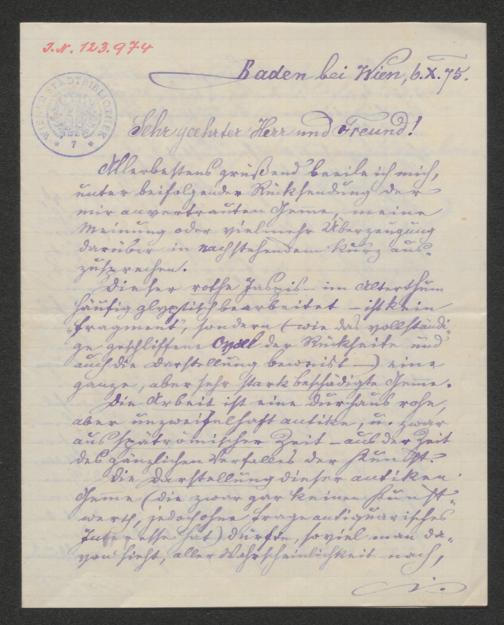 I.N. 123.974
Baden bei Wien, 6.X.75.
WIENER STADTBIBLIOTHEK
* 7 *
Sehr geehrter Herr und Freund!
Allerbestens grüßend beeile ich mich,
unter beifolgender Rücksendung der
mir anvertrauten Geme, meine
Meinung oder vielmehr Überzeugung
darüber in nachstehendem kurz aus-
zusprechen.
Dieser rothe Jaspis im Alterthum
häufig glyptisch bearbeitet – ist kein
Fragment, sondern (wie das vollständi-
ge geschliffene Oval der Rückseite und
auch die Darstellung beweist –) eine
ganze, aber sehr stark beschädigte Geme.
Die Arbeit ist eine durchaus rohe,
aber unzweifelhaft antike, u. zwar
aus spätrömischer Zeit – aus der Zeit
des gänzlichen Verfalles der Kunst.
Die Darstellung dieser antiken
Geme (die zwar gar keinen Kunst-
werth, jedoch ohne Frage antiquarisches
Interesse hat) dürfte, soviel man da-
von sieht, aller Wahrscheinlichkeit nach,